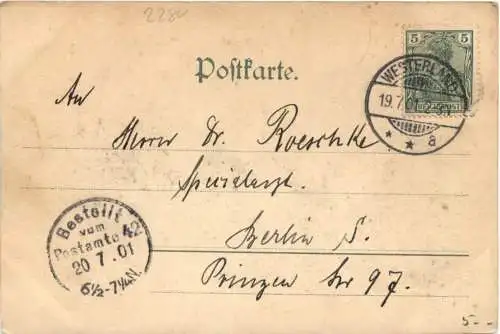 2280
5 5
Postkarte.
WESTERLAND
19.7.01
* * a
An
Herrn Dr. Roeschke
Specialarzt.
Berlin S.
Prinzen Str 97.
Bestellt
vom
Postamte 42
20 7.01
6½-7¼N.
5.-